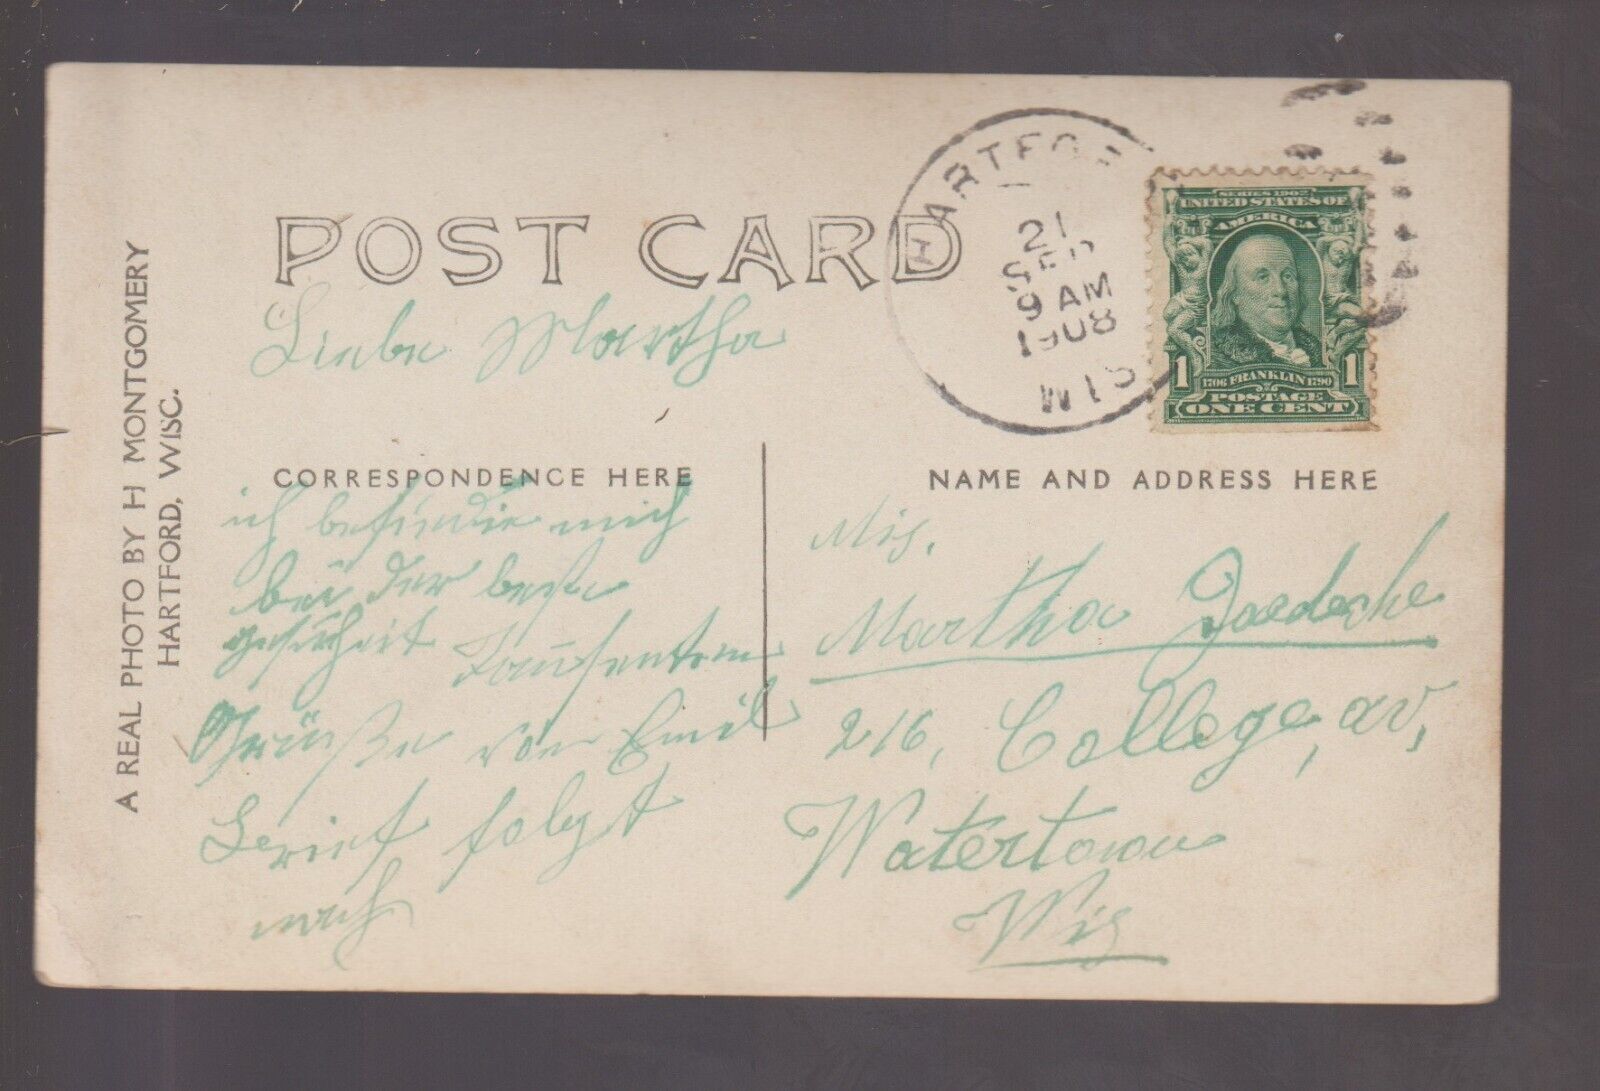 POST CARD
HARTFOR
21
SEP
9 AM
1908
WIS
SERIES 1902
UNITED STATES OF
AMERICA
1 1706 FRANKLIN 1790 1
POSTAGE
ONE CENT
A REAL PHOTO BY H MONTGOMERY
HARTFORD, WISC.
Liebe Martha
CORRESPONDENCE HERE
ich befindie mich
bei der beste
gesuheit
Grüße von Emil
Brief folgt
nach
NAME AND ADDRESS HERE
Mis.
Martha
216, College, av,
Watertown
Wis